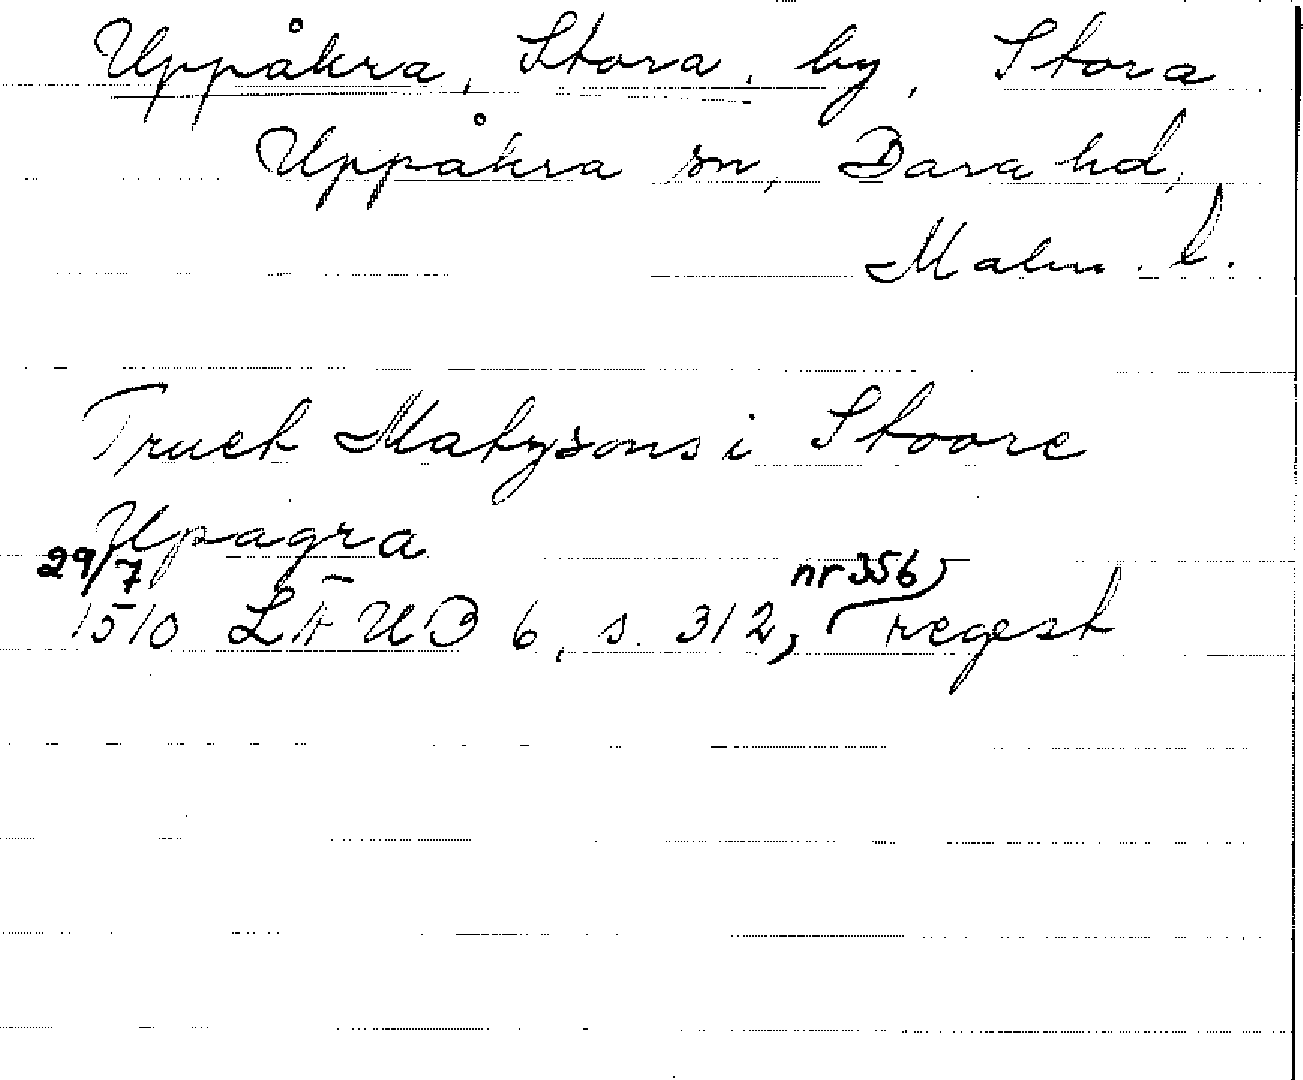 Uppåkra, Stora, by, Stora
Uppåkra sn, Bara hd,
Malm. l.
Truelt Matysons i Stoore
Upagra
29/7 nr 356,
1510 LÄUB 6, s. 312, regest